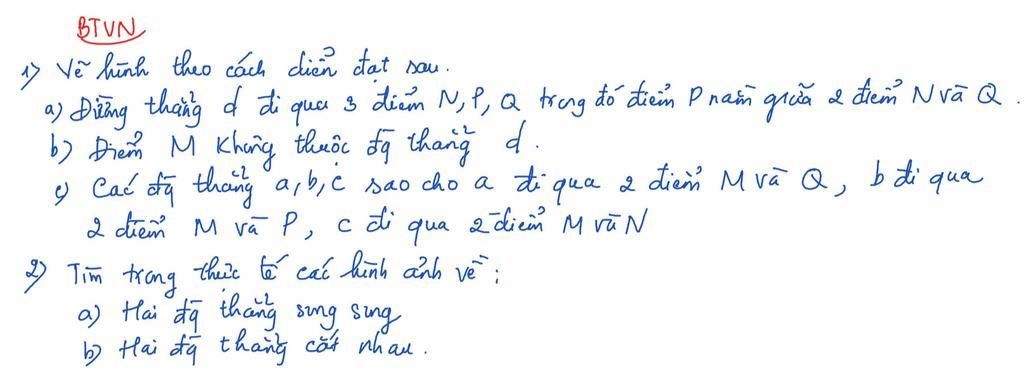 BTVN
1) Vẽ hình theo cách diễn đạt sau.
a) Đường thẳng d đi qua 3 điểm N, P, Q trong đó điểm P nằm giữa 2 điểm N và Q.
b) Điểm M không thuộc đg thẳng d.
c) Các đg thẳng a, b, c sao cho a đi qua 2 điểm M và Q, b đi qua
2 điểm M và P, c đi qua 2 điểm M và N
2) Tìm trong thực tế các hình ảnh về:
a) Hai đg thẳng song song
b) Hai đg thẳng cắt nhau.